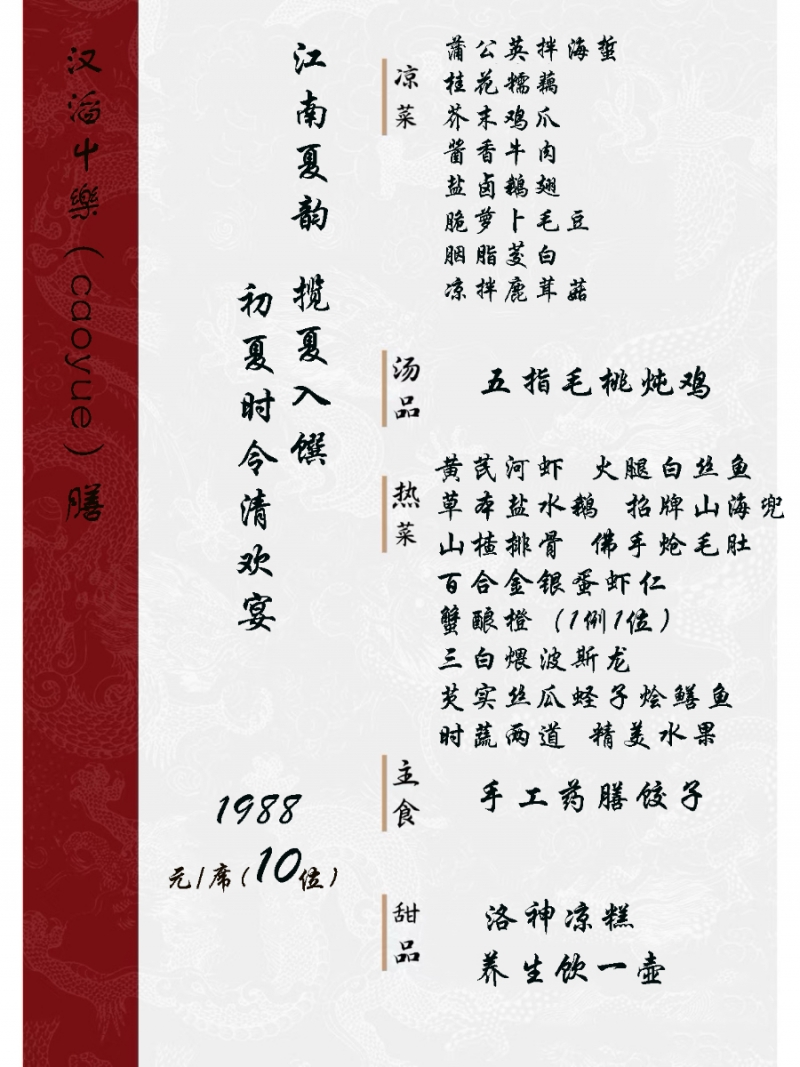 汉滔屮樂（caoyue）膳
江南夏韵 揽夏入馔
初夏时令清欢宴
1988
元/席(10位)
凉菜
蒲公英拌海蜇
桂花糯藕
芥末鸡爪
酱香牛肉
盐卤鹅翅
脆萝卜毛豆
胭脂茭白
凉拌鹿茸菇
汤品
五指毛桃炖鸡
热菜
黄芪河虾 火腿白丝鱼
草本盐水鹅 招牌山海兜
山楂排骨 佛手炝毛肚
百合金银蛋虾仁
蟹酿橙（1例1位）
三白煨波斯龙
芡实丝瓜蛏子烩鳝鱼
时蔬两道 精美水果
主食
手工药膳饺子
甜品
洛神凉糕
养生饮一壶